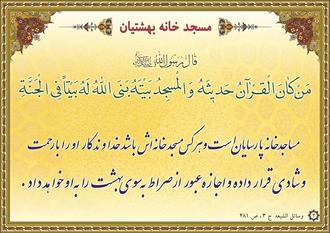 مسجد خانه بهشتیان
قال رسول الله ﷺ
مَن كانَ القُرآنُ حَديثَهُ وَ المَسجِدُ بَيتَهُ بَنَى اللهُ لَهُ بَيتاً فِى الجَنَّةِ
مساجد خانه پارسایان است و هر کس مسجد خانه اش باشد خداوند کار او را با رحمت
و شادی قرار داده و اجازه عبور از صراط به سوی بهشت را به او خواهد داد.
وسائل الشیعه ج ۳، ص ۴۸۱